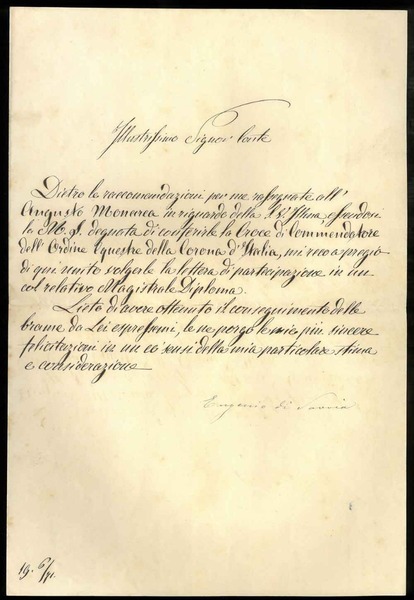 Illustrissimo Signor Conte
Dietro le raccomandazioni per me rassegnate all'
Augusto Monarca in riguardo della S.V. Ill.ma, essendosi
la M.S. degnata di conferirle la Croce di Commendatore
dell'Ordine Equestre della Corona d'Italia, mi reco a pregio
di qui unito volgerle la lettera di partecipazione in un
col relativo Magistrale Diploma.
Lieto di avere ottenuto il conseguimento delle
brame da Lei espressemi, le ne porgo le mie più sincere
felicitazioni in un co' sensi della mia particolare stima
e considerazione
Eugenio di Savoia
19. 6/71.